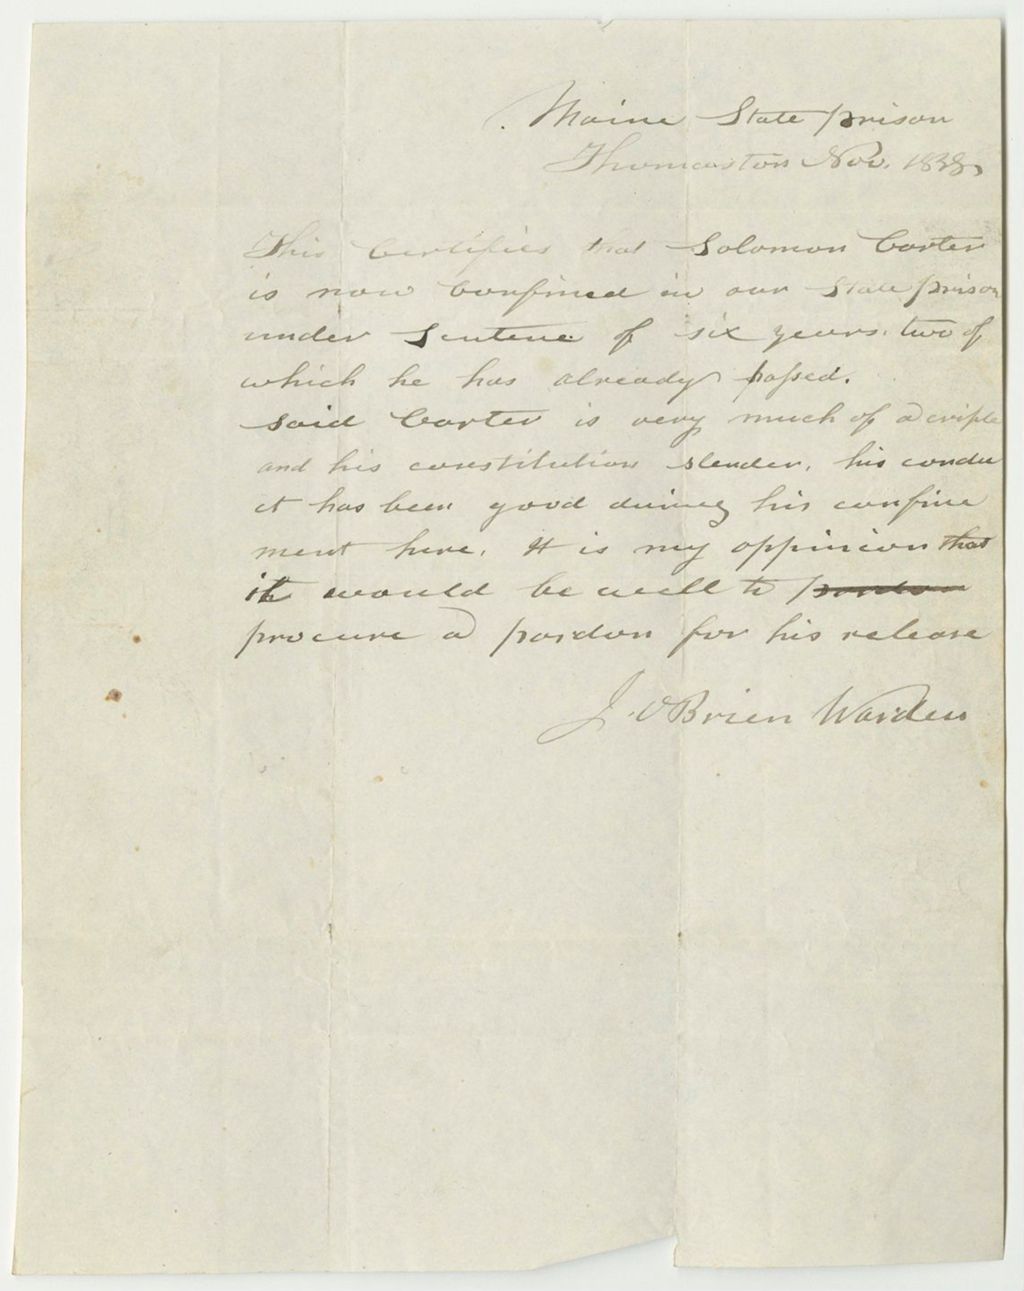 Maine State prison
Thomaston Nov. 1838
This Certifies that Solomon Carter
is now Confined in our State prison
under Sentence of six years. two of
which he has already passed.
said Carter is very much of a criple
and his constitution slender. his condu
ct has been good during his confine
ment here. It is my oppinion that
it would be well to pardon
procure a pardon for his release
J. OBrien Warden